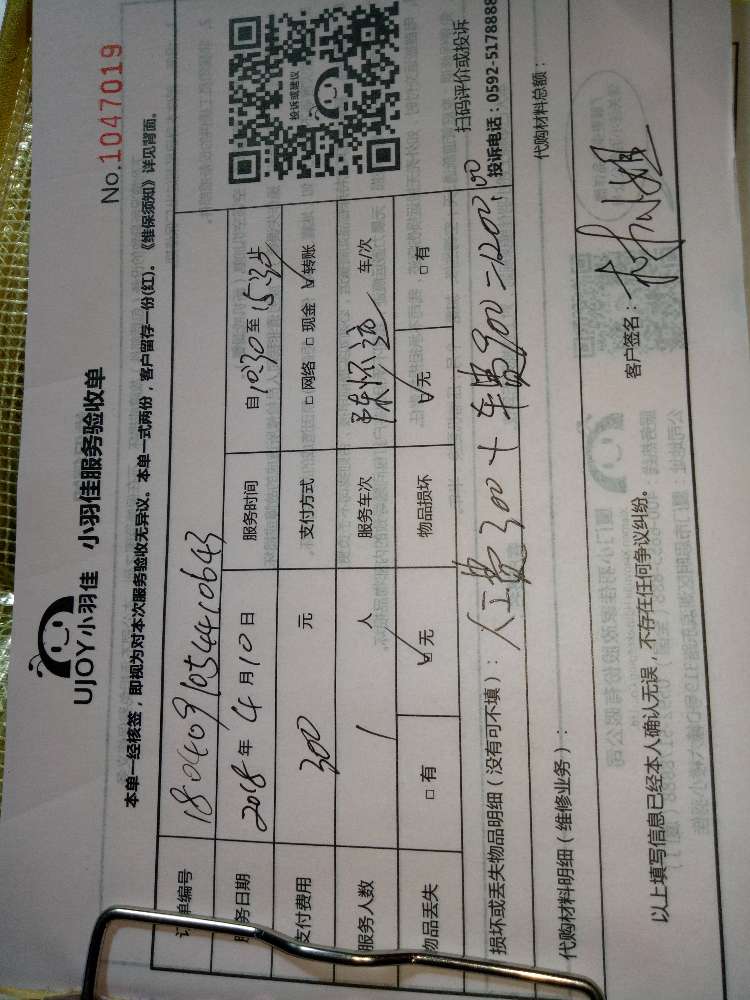 No.1047019
UJOY小羽佳 小羽佳服务验收单
本单一经核签，即视为对本次服务验收无异议。本单一式两份，客户留存一份(红)。《维保须知》详见背面。
订单编号 1804091054410643
服务日期 2018年4月10日 服务时间 自10:30至15:30止
支付费用 300元 支付方式 □网络 □现金 ☑转账
服务人数 1人 服务车次 车/次
物品丢失 □有 ☑无 物品损坏 ☑无 □有
投诉或建议
扫码评价或投诉
投诉电话：0592-5178888
损坏或丢失物品明细（没有可不填）：人工费300+车费900=1200.00
代购材料明细（维修业务）： 代购材料总额：
以上填写信息已经本人确认无误，不存在任何争议纠纷。 客户签名：